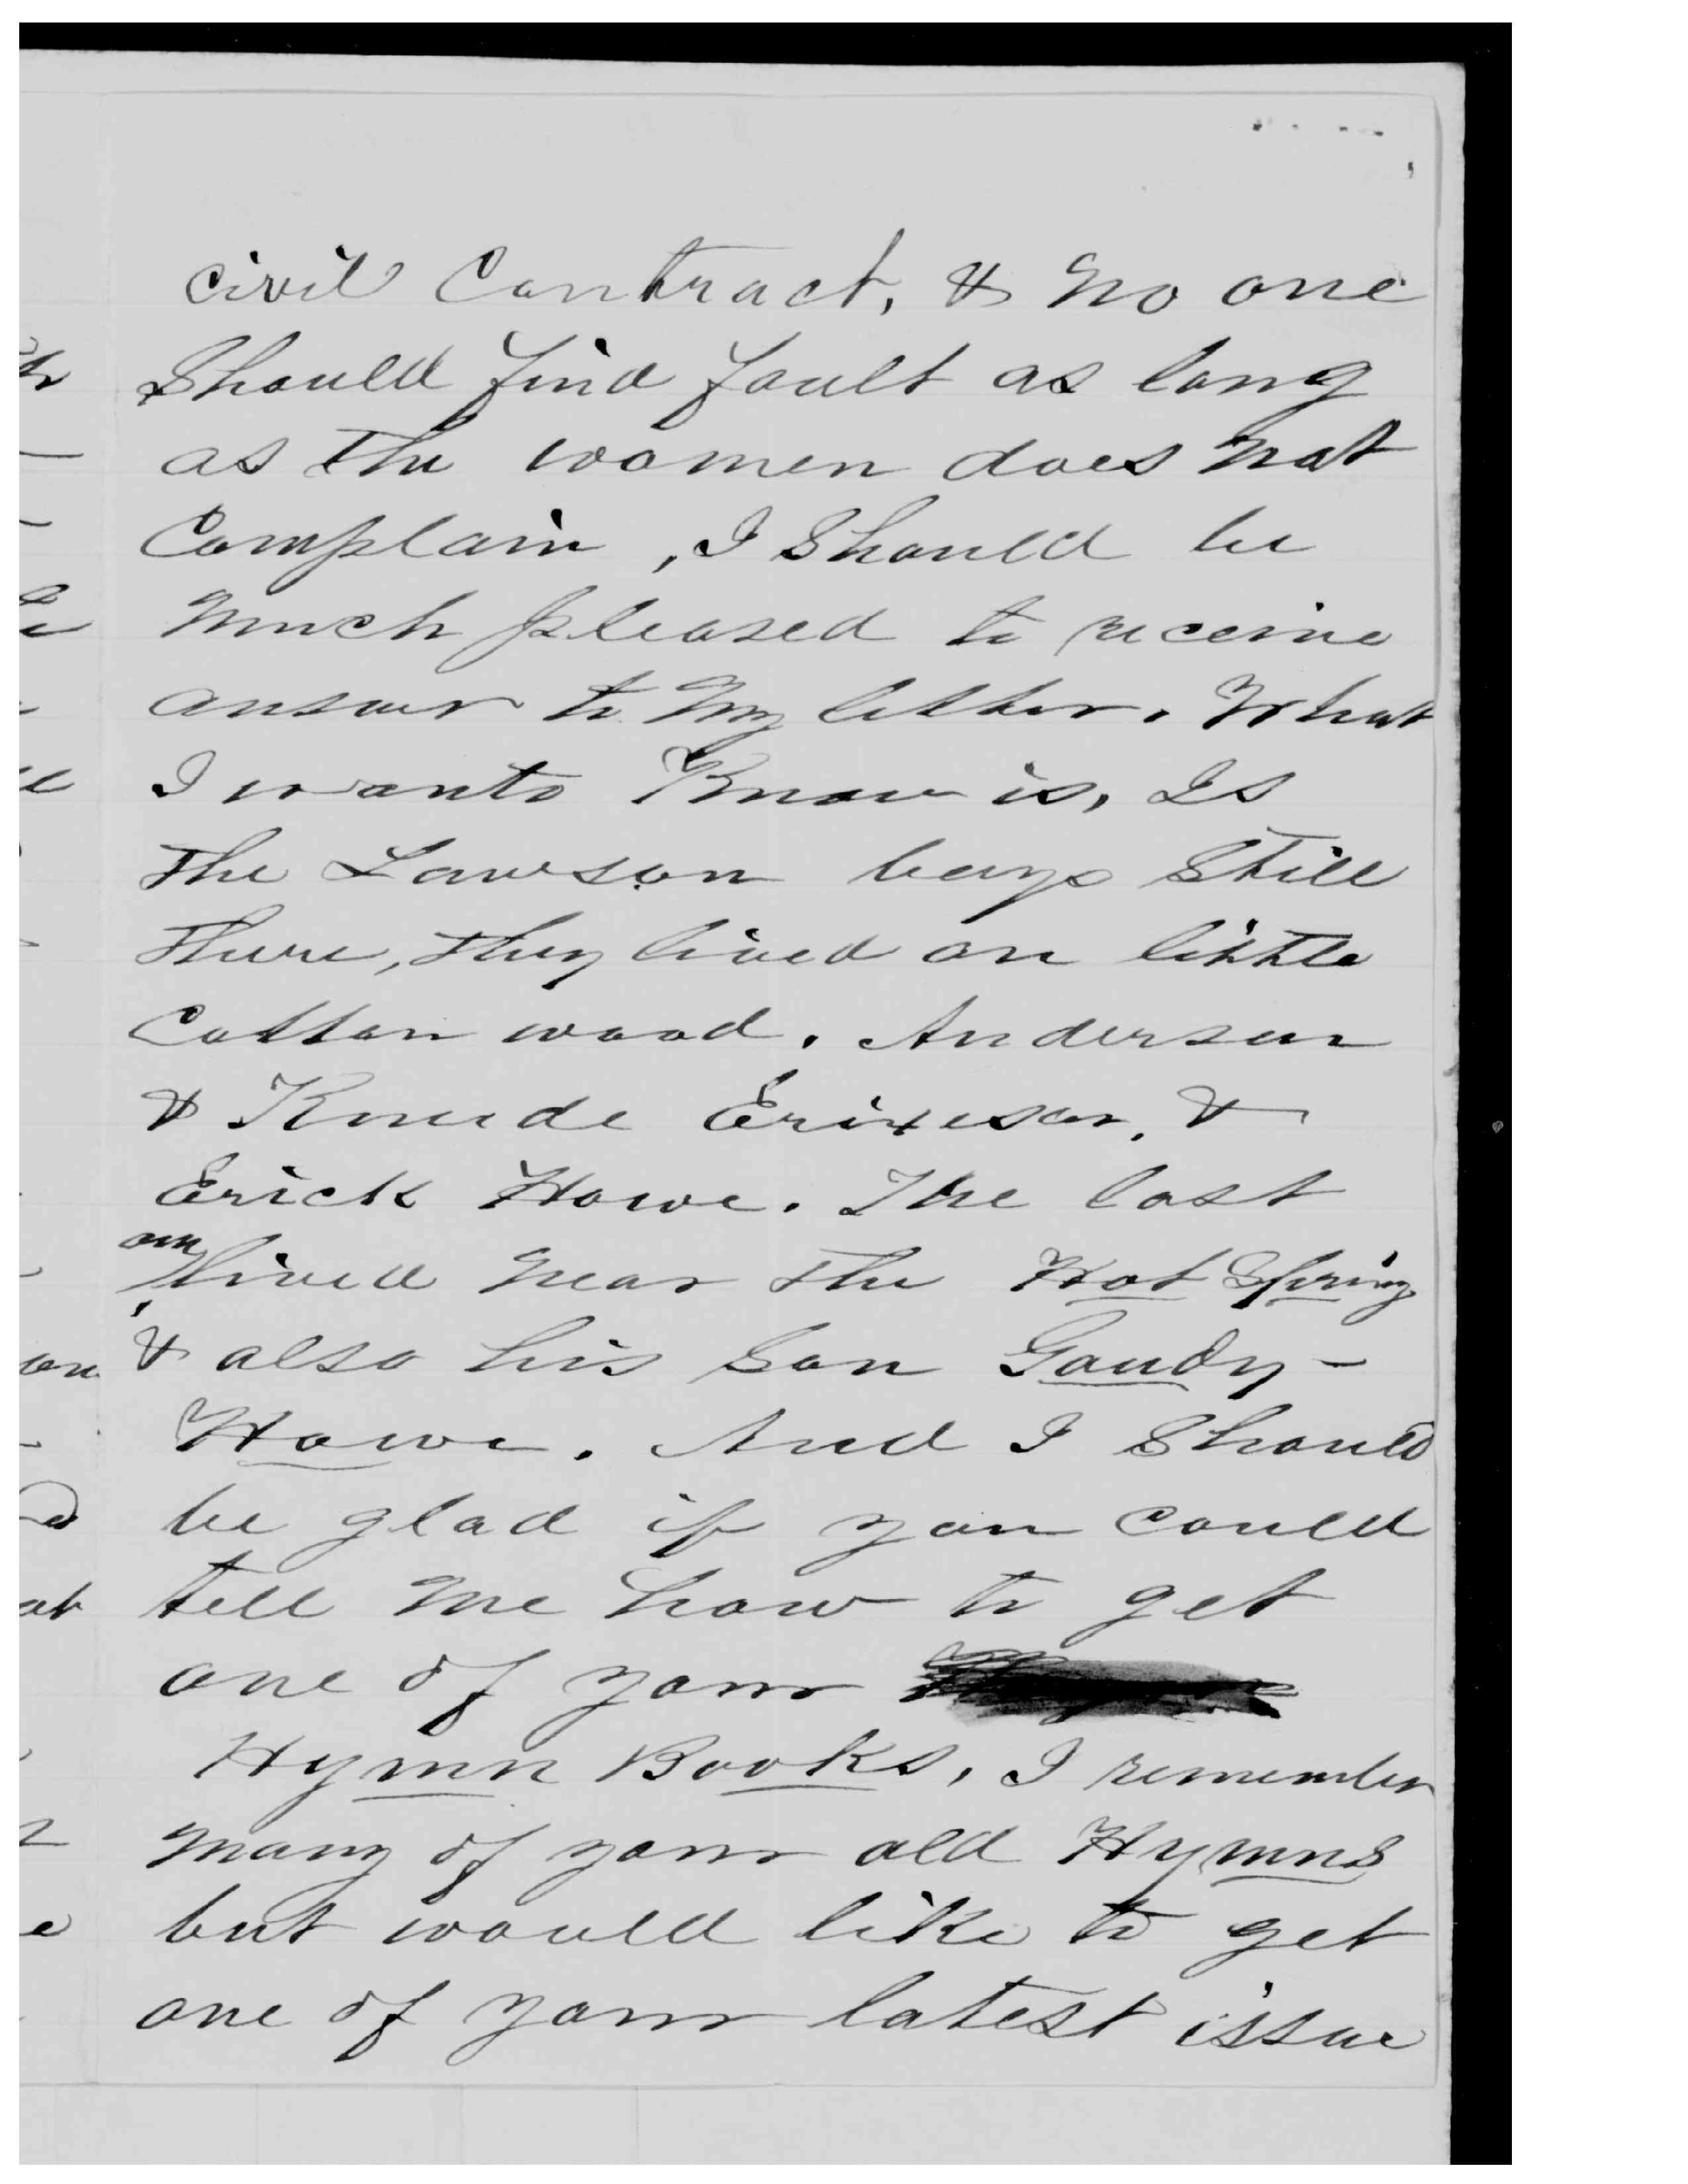 civil Contract, & no one
Should find fault as long
as the women does not
Complain, I Should be
much pleased to receive
answer to my letter. What
I wants Know is, Is
the Lawson boys Still
there, they lived on little
Cotton wood. Anderson
& Knude Erixeson, &
Erick Howe. The last
one
lived near the Hot Spring
& also his Son Gaudy -
Howe. And I Should
be glad if you could
tell me how to get
one of your
Hymn Books, I remember
many of your old Hymns
but would like to get
one of your latest issue